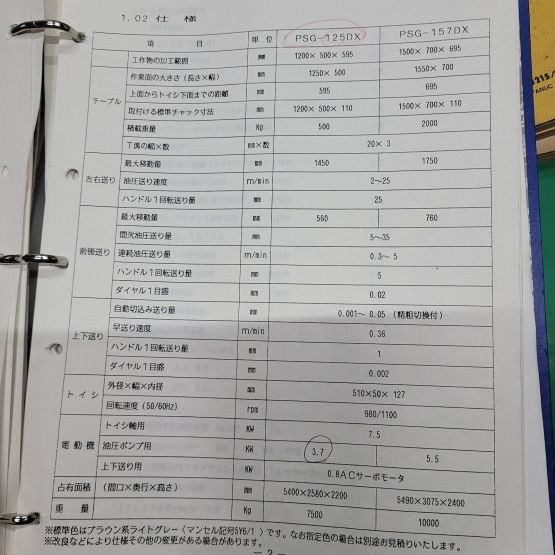 1.02 仕 様
項 目 単 位 PSG-125DX PSG-157DX
テーブル
工作物の加工範囲 mm 1200× 500× 595 1500× 700× 695
作業面の大きさ(長さ×幅) mm 1250× 500 1550× 700
上面からトイシ下面までの距離 mm 595 695
取付ける標準チャック寸法 mm 1200× 500× 110 1500× 700× 110
積載重量 Kg 500 2000
T溝の幅×数 mm×数 20× 3
左右送り
最大移動量 mm 1450 1750
油圧送り速度 m/min 2~25
ハンドル1回転送り量 mm 25
前後送り
最大移動量 mm 560 760
間欠油圧送り量 mm 5~35
連続油圧送り量 m/min 0.3~ 5
ハンドル1回転送り量 mm 5
ダイヤル1目盛 mm 0.02
上下送り
自動切込み送り量 mm 0.001~ 0.05 (精粗切換付)
早送り速度 m/min 0.36
ハンドル1回転送り量 mm 1
ダイヤル1目盛 mm 0.002
トイシ
外径×幅×内径 mm 510×50× 127
回転速度 (50/60Hz) rpm 980/1100
電動機
トイシ軸用 KW 7.5
油圧ポンプ用 KW 3.7 5.5
上下送り用 KW 0.8ACサーボモータ
占有面積 (間口×奥行×高さ) mm 5400×2580×2200 5490×3075×2400
重 量 Kg 7500 10000
※標準色はブラウン系ライトグレー(マンセル記号5Y6/1 )です。なお指定色の場合は別途お見積りいたします。
※改良などにより仕様その他の変更がある場合があります。
— 2 —
FANUC